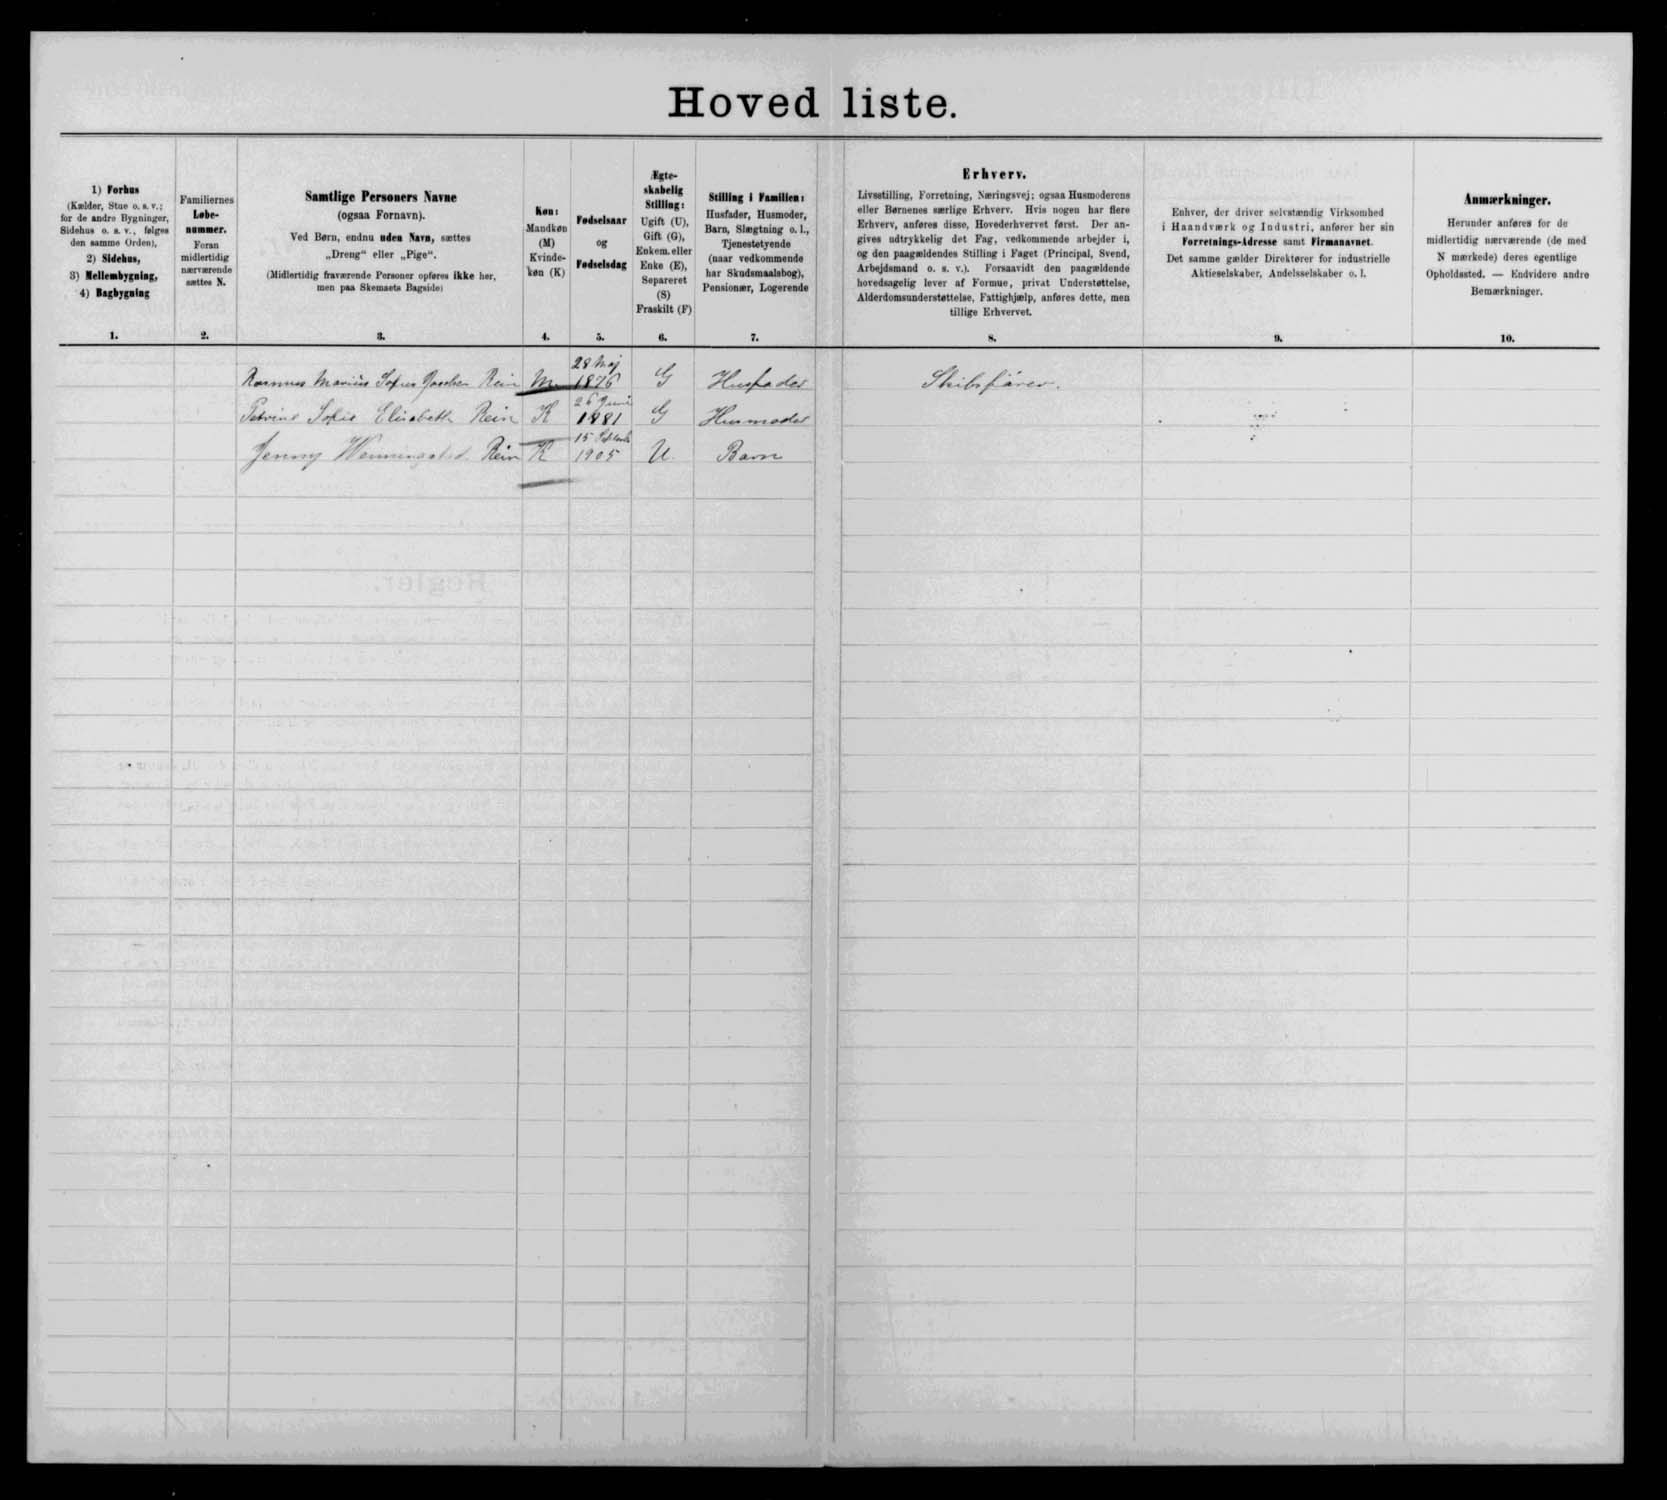 Hovedliste.
1) Forhus
(Kælder, Stue o. s. v.;
for de andre Bygninger,
Sidehus o. s. v., følges
den samme Orden),
2) Sidehus,
3) Mellembygning,
4) Bagbygning
Familiernes
Løbe-
nummer.
Foran
midlertidig
nærværende
sættes N.
Samtlige Personers Navne
(ogsaa Fornavn).
Ved Børn, endnu uden Navn, sættes
„Dreng“ eller „Pige“.
(Midlertidig fraværende Personer opføres ikke her,
men paa Skemaets Bagside)
Køn:
Mandkøn
(M)
Kvinde-
køn (K)
Fødselsaar
og
Fødselsdag
Ægte-
skabelig
Stilling:
Ugift (U),
Gift (G),
Enkem. eller
Enke (E),
Separeret
(S)
Fraskilt (F)
Stilling i Familien:
Husfader, Husmoder,
Barn, Slægtning o. l.,
Tjenestetyende
(naar vedkommende
har Skudsmaalsbog),
Pensionær, Logerende
Erhverv.
Livsstilling, Forretning, Næringsvej; ogsaa Husmoderens
eller Børnenes særlige Erhverv. Hvis nogen har flere
Erhverv, anføres disse, Hovederhvervet først. Der an-
gives udtrykkelig det Fag, vedkommende arbejder i,
og den paagældendes Stilling i Faget (Principal, Svend,
Arbejdsmand o. s. v.). Forsaavidt den paagældende
hovedsagelig lever af Formue, privat Understøttelse,
Alderdomsunderstøttelse, Fattighjælp, anføres dette, men
tillige Erhvervet.
Enhver, der driver selvstændig Virksomhed
i Haandværk og Industri, anfører her sin
Forretnings-Adresse samt Firmanavnet.
Det samme gælder Direktører for industrielle
Aktieselskaber, Andelsselskaber o. l.
Anmærkninger.
Herunder anføres for de
midlertidig nærværende (de med
N mærkede) deres egentlige
Opholdssted. — Endvidere andre
Bemærkninger.
1. 2. 3. 4. 5. 6. 7. 8. 9. 10.
28 Maj
Rasmus Marius Sofus Rein M 1876 G Husfader Skibsfører.
26 Juni
Petrine Sofie Elisabeth Rein K 1881 G Husmoder
15
Jenny Wenningsted Rein K 1905 U. Barn